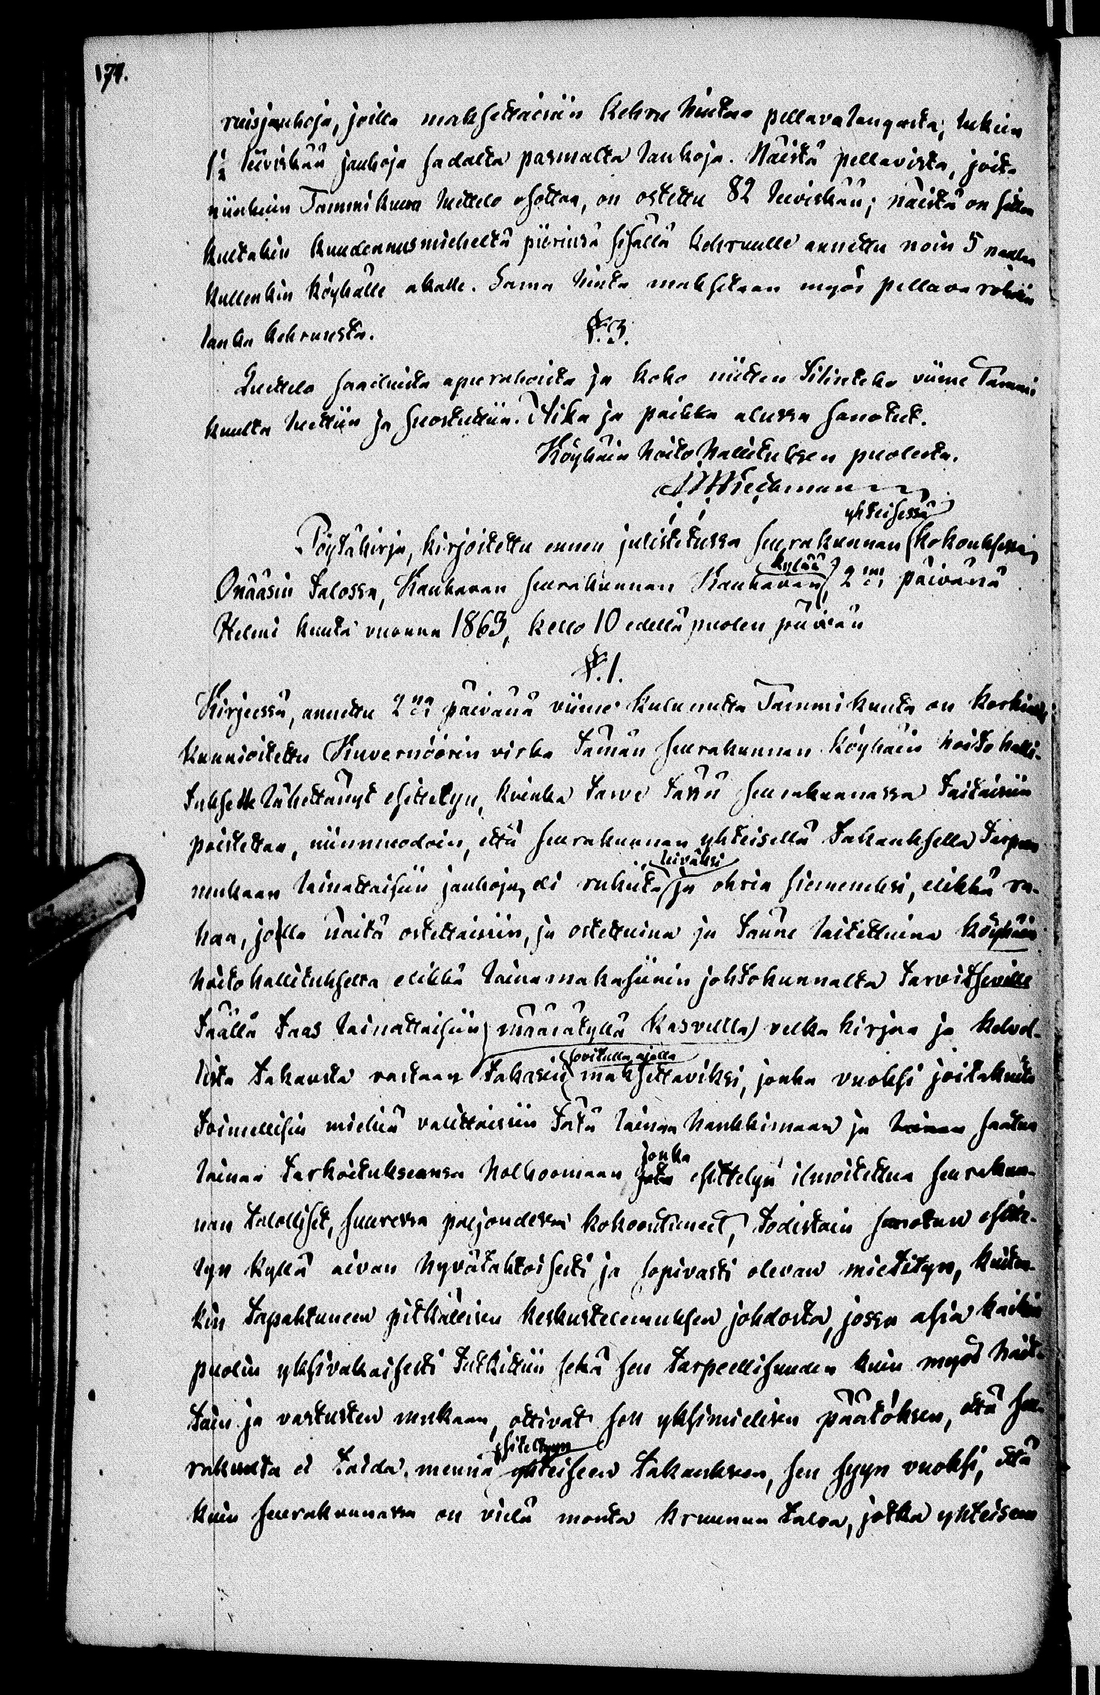 174.
ruisjauhoja, joilla maksettaisiin kehru hintaa pellavalangasta, lukien
1/2 leiviskää jauhoja sadalta pasmalta lankoja. Näistä pellavista, joita
niinkuin Tammikuun luettelo osottaa, on ostettu 82 leiviskää; näistä on sitten
kultakin kuudennusmieheltä piirinsä sisällä kehruulle annettu noin 5 naulaa
kullenkin köyhälle akalle. Sama hinta maksetaan myös pellava rohdin
lanka kehruusta.
§. 3.
Luettelo saaduista apurahoista ja koko niitten tilinteko viime Tammi
kuulta luettiin ja suostuttiin. Aika ja paikka alussa sanotut.
Köyhäin hoito hallituksen puolesta.
yhteisessä
Pöytäkirja, kirjoitettu ennen julistetussa seurakunnan kokouksessa
kylää
Onääsin talossa, Kauhavan seurakunnan Kauhavan 2na päivänä
Helmi kuuta vuonna 1863, kello 10 edellä puolen päivän
§. 1.
Kirjeessä, annettu 2na päivänä viime kulunutta Tammikuuta on korkiasti
kunnioitettu Kuvernöörin virka tämän seurakunnan Köyhäin hoito halli-
tukselle lähettänyt esittelyn, kuinka tarve tässä seurakunnassa taitaisiin
poistettaa, niinmuodoin, että seurakunnan yhteisellä takauksella tarpeen
leiväksi
mukaan lainattaisiin jauhoja, eli rukiita ja ohria siemeneksi, elikkä ra-
haa, jolla näitä ostettaisiin, ja ostettuina ja tänne laitettuina köyhäin
hoitohallitukselta elikkä lainamakasiinin johtokunnalta tarvitseville
täällä taas lainattaisiin määrätyllä kasvulla velka kirjaa ja kelvol-
sovitulla ajalla
lista takausta vastaan takasin maksettaviksi, jonka vuoksi joitakuita
toimellisia miehiä valittaisiin tätä lainaa hankkimaan ja lainan saatua
jonka
lainaa tarkoituksensa holhoomaan jota esittelyn ilmoitettua seurakun-
nan talolliset, suuressa paljoudessa kokoontuneet, todistain sanotun esitte-
lyn kyllä aivan hyvätahtoisesti ja sopivasti olevan mietityn, kuiten-
kin tapahtuneen pitkällisen keskustelemuksen johdosta, jossa asia kaikin
puolin yksivakaisesti tutkittiin sekä sen tarpeellisuuden kuin myös hait-
tain ja vastusten mukaan, ottivat sen yksimielisen päätöksen, että seu-
esiteltyyn
rakunta ei taida mennä yhteiseen takaukseen, sen syyn vuoksi, että
kuin seurakunnassa on vielä monta kruunun taloa, jotka yhteiseen